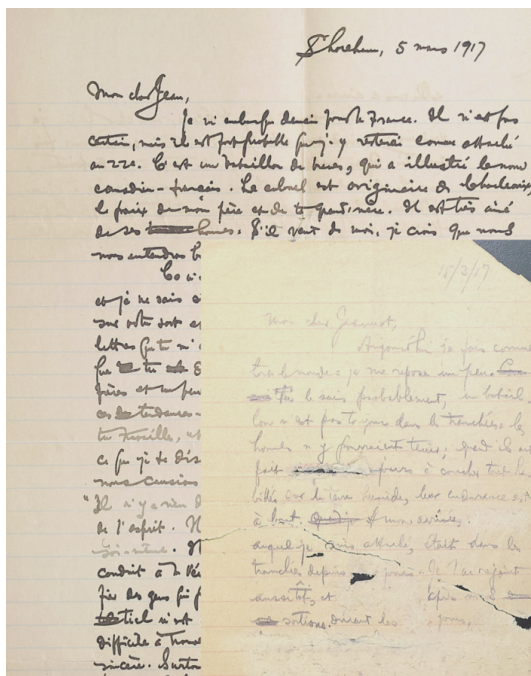 Shoreham, 5 mars 1917
Mon cher Jean,
Je m'embarque demain pour la France. Il n'est pas
certain, mais il est fort probable que j'y resterai comme attaché
au 22e. C'est un bataillon de héros, qui a illustré le nom
canadien-français. Le colonel est originaire de Charlevoix,
le pays de mon père et de ta grand'mère. Il est très aimé
de ses hommes. S'il veut de moi, je crois que nous
nous entendrons b
Ce n'
et je ne sais
sur votre sort et
lettres que tu m'
que tu
frères et un peu
ces tendances
tu travailles,
ce que je te dis
nous causions
"Il n'y a rien d
de l'esprit. N
soi-même. Il
conduit à la Vé
fie des gens qui
n'est
difficile à trouver
sincère. Surtout
15/3/17
Mon cher Jeannot,
Aujourd'hui je fais comme
tout le monde: je me repose un peu.
Tu le sais probablement, un batail-
lon n'est pas toujours dans la tranchée: les
hommes n'y pourraient tenir; quand ils ont
fait jours à coucher tout ha-
billés sur la terre humide, leur endurance est
à bout. A mon arrivée,
auquel je suis attaché, était dans les
tranchées depuis jours. Je l'ai rejoint
aussitôt, et après
sortions, durant les jours,